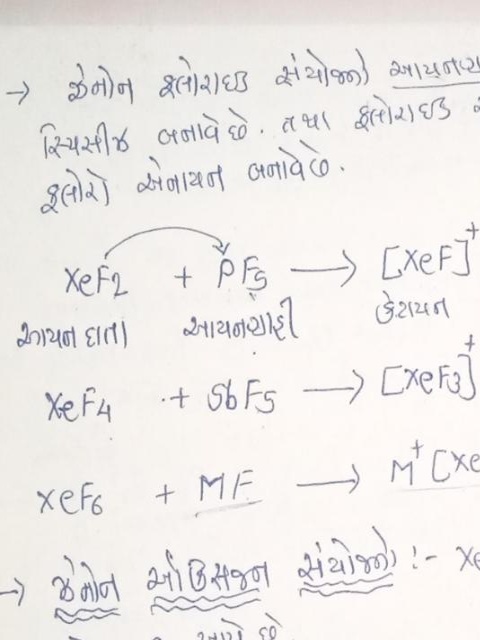 → ઝેનોન ફ્લોરાઇડ સંયોજનો
સ્પિસીઝ બનાવે છે. તથા ફ્લોરાઇડ
ફ્લોરો એનાયન બનાવે છે.
XeF2 + PF5 → [XeF]+
આયન દાતા આયનગ્રાહી કેટાયન
XeF4 + SbF5 → [XeF3]+
XeF6 + MF → M+ [Xe
→ ઝેનોન ઓક્સિજન સંયોજનો :- Xe